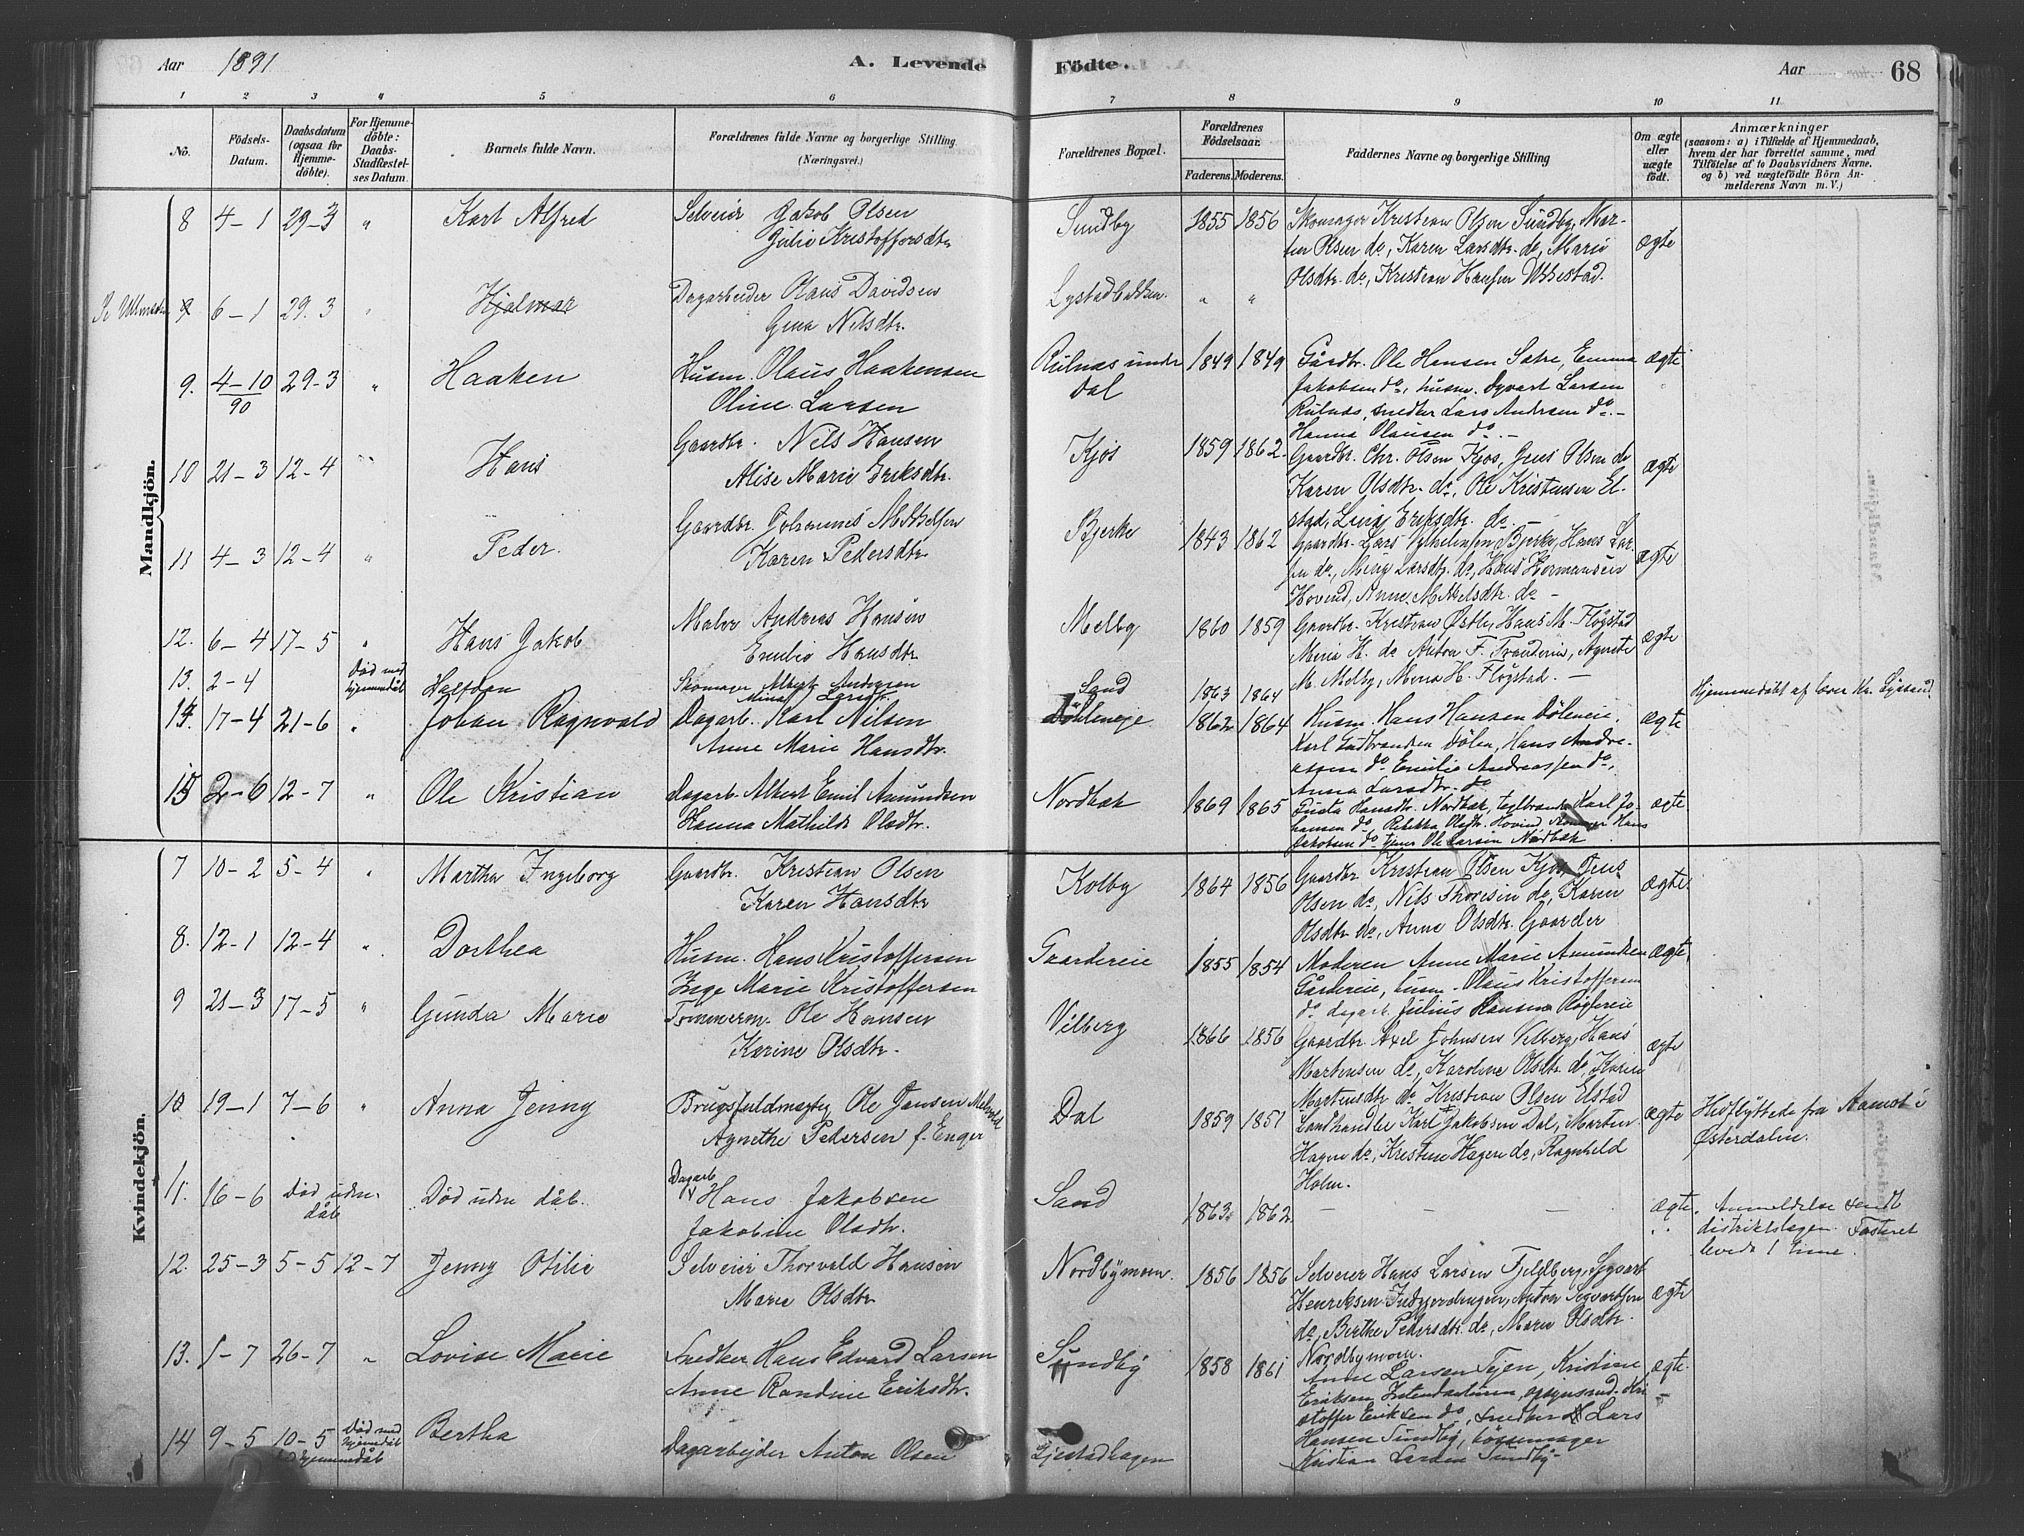 Aar 1891
A. Levende Födte.
Aar 68
1 2 3 4 5 6 7 8 9 10 11
No.
Födsels-Datum.
Daabsdatum (ogsaa for Hjemmedöbte).
For Hjemmedöbte: Daabs-Stadfæstelses Datum.
Barnets fulde Navn.
Forældrenes fulde Navne og borgerlige Stilling (Næringsvei.)
Forældrenes Bopæl.
Forældrenes Födselsaar.
Faderens. Moderens.
Faddernes Navne og borgerlige Stilling
Om ægte eller uægte födt.
Anmærkninger
(saasom: a) i Tilfælde af Hjemmedaab, hvem der har forrettet samme, med Tilföielse af to Daabsvidners Navne, og b) ved uægtefödte Börn Anmelderens Navn m. V.)
Mandkjön.
8 4-1 29-3 " Karl Alfred Selveier Jakob Olsen Sundby 1855 1856 Skomager Kristian Olsen Sundby, Mar-
Julie Kristoffersdtr tin Olsen do, Karen Larsdtr. do, Marie ægte
Olsdtr. do, Kristian Hansen
9 6-1 29.3 " Hjalmar Dagarbeider Olaus Davidsen " "
Gina Nilsdtr.
9. 4-10/90 29-3 " Haaken Husm. Olaus Haakensen Rulnæs under Dal 1849 1849 Gårdbr. Ole Hansen Sætre, Emma ægte
Oline Larsen Jakobsen do, husm. Syvart Larsen
Rulnæs, snedker Lars Andersen do.-
Hanna Olausen do.-
10 21-3 12-4 Hans Gaardbr. Nils Hansen Kjos 1859 1862 Gaardbr. Chr. Olsen Kjos, Jens Olsen do
Alise Marie Eriksdtr. Karen Olsdtr. do, Ole Kristensen El- ægte
stad, Lina Eriksdtr. do.
11 4-3 12-4 " Peder. Gaardbr. Johannes Bjerke 1843 1862 Gaardbr. Lars Bjerke, Hans Lar-
Karen Pedersdtr. sen do, Larsdtr. do, Hans Hermansen ægte
Hovind, Anne do -
12. 6-4 17-5 " Hans Jakob Maler Andreas Hansen Melby 1860 1859 Gaardbr. Kristian Hans M. Fløgstad
Emilie Hansdtr H. do Anton F. Agnete ægte
M. Melby, H. Fløgstad. -
13. 2-4 Død med hjemmedåb Halfdan Skomager Albert Andersen Sand 1863 1864 Hjemmedøbt af
Mina Larsdtr.
14. 17-4 21-6 " Johan Ragnvald Dagarb. Karl Nilsen 1862 1864 Husm. Hans Hansen ægte
Anne Marie Hansdtr. Karl Gudbrandsen Dølen, Hans Andre-
assen do Emilie Andreassen do,
Anna Larsdtr. do
15 2-6 12-7 " Ole Kristian Dagarb. Albert Emil Amundsen Nordbæk 1869 1865 Hansdtr. Nordbæk, Karl Jo- ægte
Hanna Mathilde Olsdtr. hansen do Rebekka Olsdtr. Hovind Hans
Jakobsen do Ole Larsen Nordbæk
Kvindekjön.
7 10-2 5-4 " Martha Ingeborg Gaardbr. Kristian Olsen Kolby 1864 1856 Gaardbr Kristian Olsen Kjos, Jens
Karen Hansdtr Olsen do, Nils Thoresen do, Karen ægte.
Olsdtr do, Anne Olsdtr. Gaarder
8. 12-1 12-4 " Dorthea Husm. Hans Kristoffersen Gaardereie 1855 1854 Moderen Anne Marie Amundsen ægte.
Inge Marie Kristoffersen Gårdereie, husm. Olaus Kristoffersen
do dagarb. Julius Hansen
9 21-3 17-5 " Gunda Marie Tømmerm. Ole Hansen Vilberg 1866 1856 Gaardbr. Axel Johnsen Vilberg, Hans
Karine Olsdtr. Martinsen do, Karoline Olsdtr do, Karen ægte
Martinsdtr. do Kristian Olsen Elstad
10 19-1 7-6 " Anna Jenny Brugsfuldmægtig Ole Jansen Dal 1859 1851 Landhandler Karl Jakobsen Dal, Martin ægte Hidflyttede fra Aamot i
Agnethe Pedersen f. Enger Hagen do, Kristine Hagen do, Ragnhild Østerdalen.
Holm.
11. 16-6 Død uden dåb Død uden dåb. Dagarb Hans Jakobsen Sand 1863 1862 - - - ægte. Anmeldelse sendt
Jakobine Olsdtr. distriktslægen. Fosteret
levede 1 time.
12. 25-3 5-5 12-7 Jenny Otilie Selveier Thorvald Hansen Nordbymoen. 1856 1856 Selveier Hans Larsen Fjeldberg, Sygvart
Marie Olsdtr Henriksen Anton Sygvartsen ægte
do, Berthe Pedersdtr. do, Maren Olsdtr.
Nordbymoen.
13. 1-7 26-7 " Lovise Marie Snedker Hans Edvard Larsen Sundby 1858 1861 Anne Larsen Kristine ægte.
Anne Randine Eriksdtr. Eriksen Kri-
stoffer Eriksen do, snedker Lars
Hansen Sundby,
Kristian Larsen Sundby-
14 9-5 10-5 Død med hjemmedåb Bertha Dagarbejder Anton Olsen Gjestadhagen